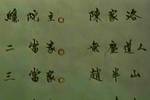 總舵主 陳家洛
二當家 無塵道人
三當家 趙半山